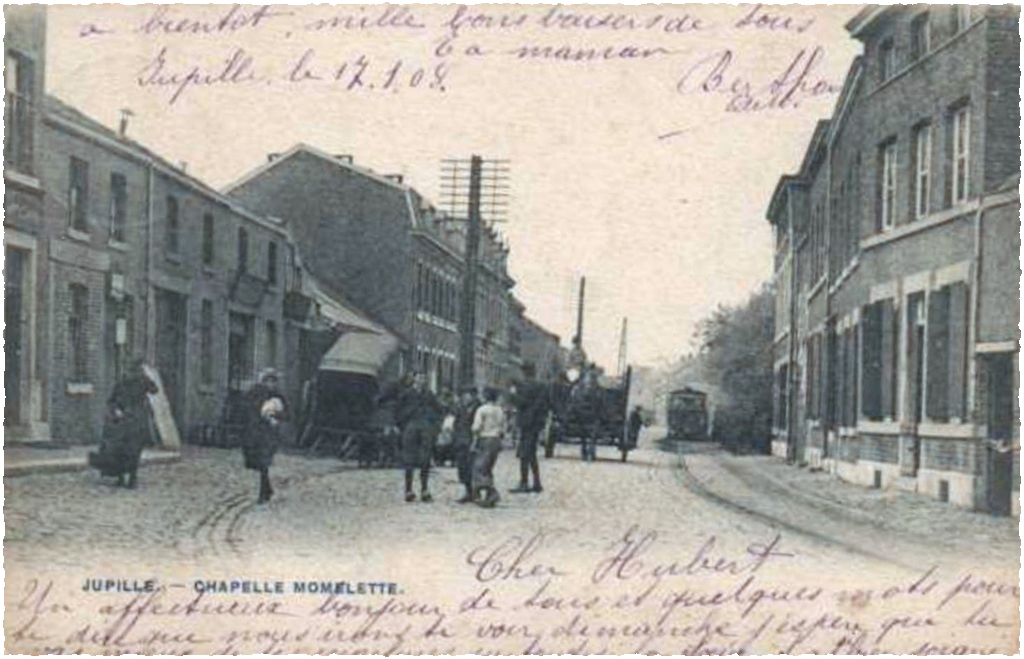 a bientot, mille bons baisers de tous
ta maman
Jupille, le 17.1.08.
JUPILLE. — CHAPELLE MOMELETTE.
Cher Hubert
Un affectueux bonjour de tous et quelques mots pour
te dire que nous irons te voir dimanche j'espere que tu